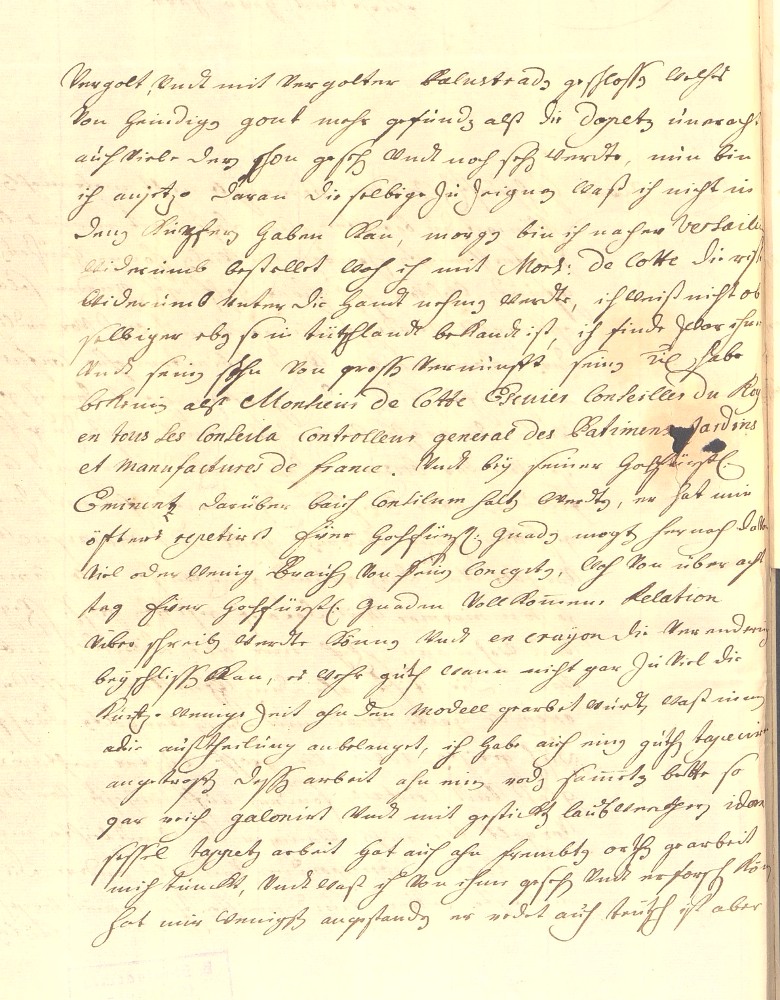 Vergolt, Undt mit Vergolter Balustrady geschlossen welches
Von heindigen gout mehr gefunden alß die Dopelten
auch Viele dern schon gesehn Undt noch sehn werdte, nun bin
ich anjetzo daran dieselbige zu zeignen waß ich nicht in
denen Kupfern haben kan, morgen bin ich nacher Versaille
widerumb bestellet wo ich mit Mons: de Cotte die
widerumb unter die handt nehmen werdte, ich weiß nicht ob
selbiger eben so in tütschlandt bekandt ist, ich finde zwar ihn
Undt seinen sohn Von grosser Vernunfft seinen habe
bekomen alß Monsieur de Cotte Escuier Conseiller du Roy
en tous ses Conseils Controlleur general des Batimens Jardins
et manufactures de france. Undt bey seiner Hochfürstl:
Eminentz darüber Consilium halten werdten, er hat mir
öffters repetirt Euer Hochfürstl: Gnaden mögten hernach
Viel oder wenig Brauchen Von sein Concepten, Von über acht
tag Euer Hochfürstl: Gnaden Vollkommene Relation
überschreiben werdte können Undt en crayon die Verenderung
beyschliessen kan, es wehr guth wann nicht gar zu Viel die
Kurtze wenige zeit ahn den Modell gearbeit würdt, waß
außtheilung anbelanget, ich habe auch einen guthen tapecirer
angetroffen dessen arbeit ahn ein roden sammeten bette so
gar reich galonirt Undt mit gestickten laubwercken
sessel tappeten arbeit hat auch ahn frembten orthen gearbeit
mich tünckt, Undt waß ich Von ihme gesehn Undt erforschen
hat mir wenigst angestanden er redet auch teutsch ist aber